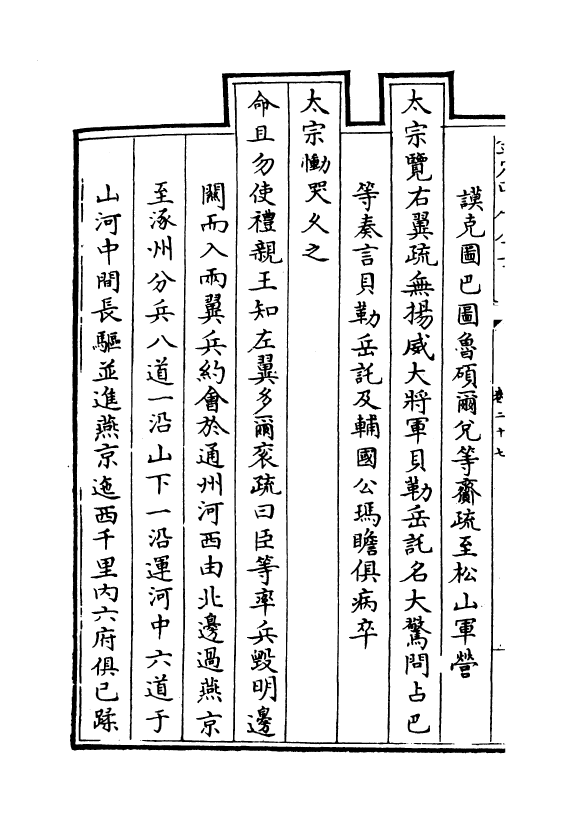 謨克圖巴圖魯碩爾兌等齎疏至松山軍營
太宗覽右翼疏無揚威大將軍貝勒岳託名大驚問占巴
等奏言貝勒岳託及輔國公瑪瞻俱病卒
太宗慟哭久之
命且勿使禮親王知左翼多爾袞疏曰臣等率兵毀明邊
關而入兩翼兵約會於通州河西由北邊過燕京
至涿州分兵八道一沿山下一沿運河中六道于
山河中間長驅並進燕京迤西千里內六府俱已蹂
卷二十七